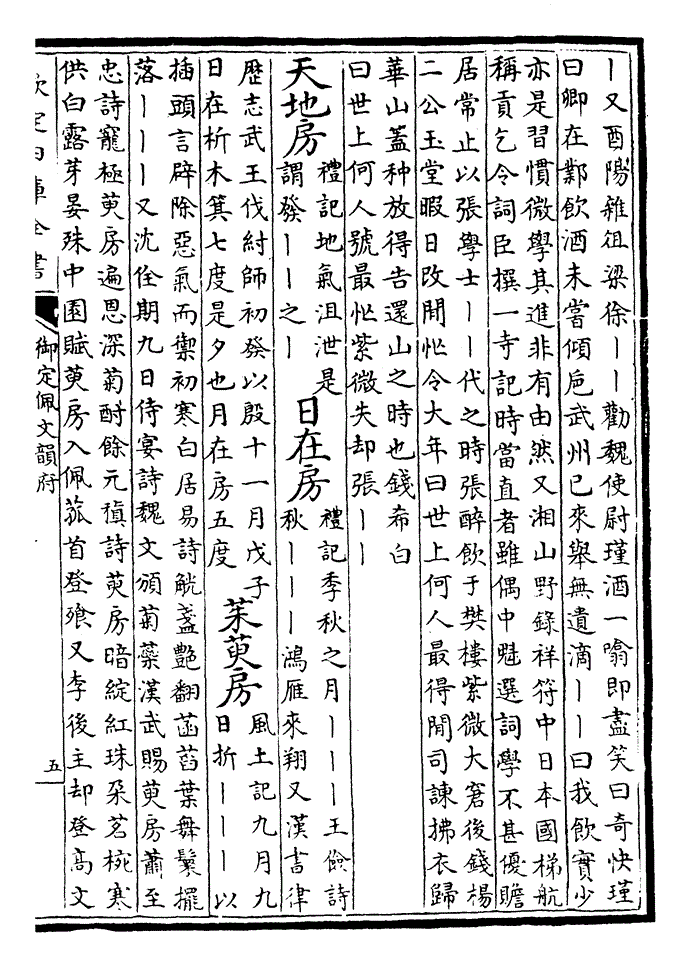 丨又酉陽雜俎梁徐丨丨勸魏使尉瑾酒一噏即盡笑曰奇快瑾
曰卿在鄴飲酒未嘗傾巵武州已來舉無遺滴丨丨曰我飲實少
亦是習慣微學其進非有由然又湘山野錄祥符中日本國梯航
稱貢乞令詞臣撰一寺記時當直者雖偶中魁選詞學不甚優贍
居常止以張學士丨丨代之時張醉飲于樊樓紫微大窘後錢楊
二公玉堂暇日改閒忙令大年曰世上何人最得閒司諫拂衣歸
華山蓋种放得告還山之時也錢希白
曰世上何人號最忙紫微失却張丨丨
天地房
禮記地氣沮泄是
謂發丨丨之丨
日在房
禮記季秋之月丨丨丨王儉詩
秋丨丨丨鴻雁來翔又漢書律
歷志武王伐紂師初發以殷十一月戊子
日在析木箕七度是夕也月在房五度
茱萸房
風土記九月九
日折丨丨丨以
插頭言辟除惡氣而禦初寒白居易詩觥盞艷翻菡萏葉舞鬟擺
落丨丨丨又沈佺期九日侍宴詩魏文頒菊蘂漢武賜萸房蕭至
忠詩寵極萸房遍恩深菊酎餘元稹詩萸房暗綻紅珠朵茗椀寒
供白露芽晏殊中園賦萸房入佩菰首登飱又李後主却登高文
欽定四庫全書
御定佩文韻府
五